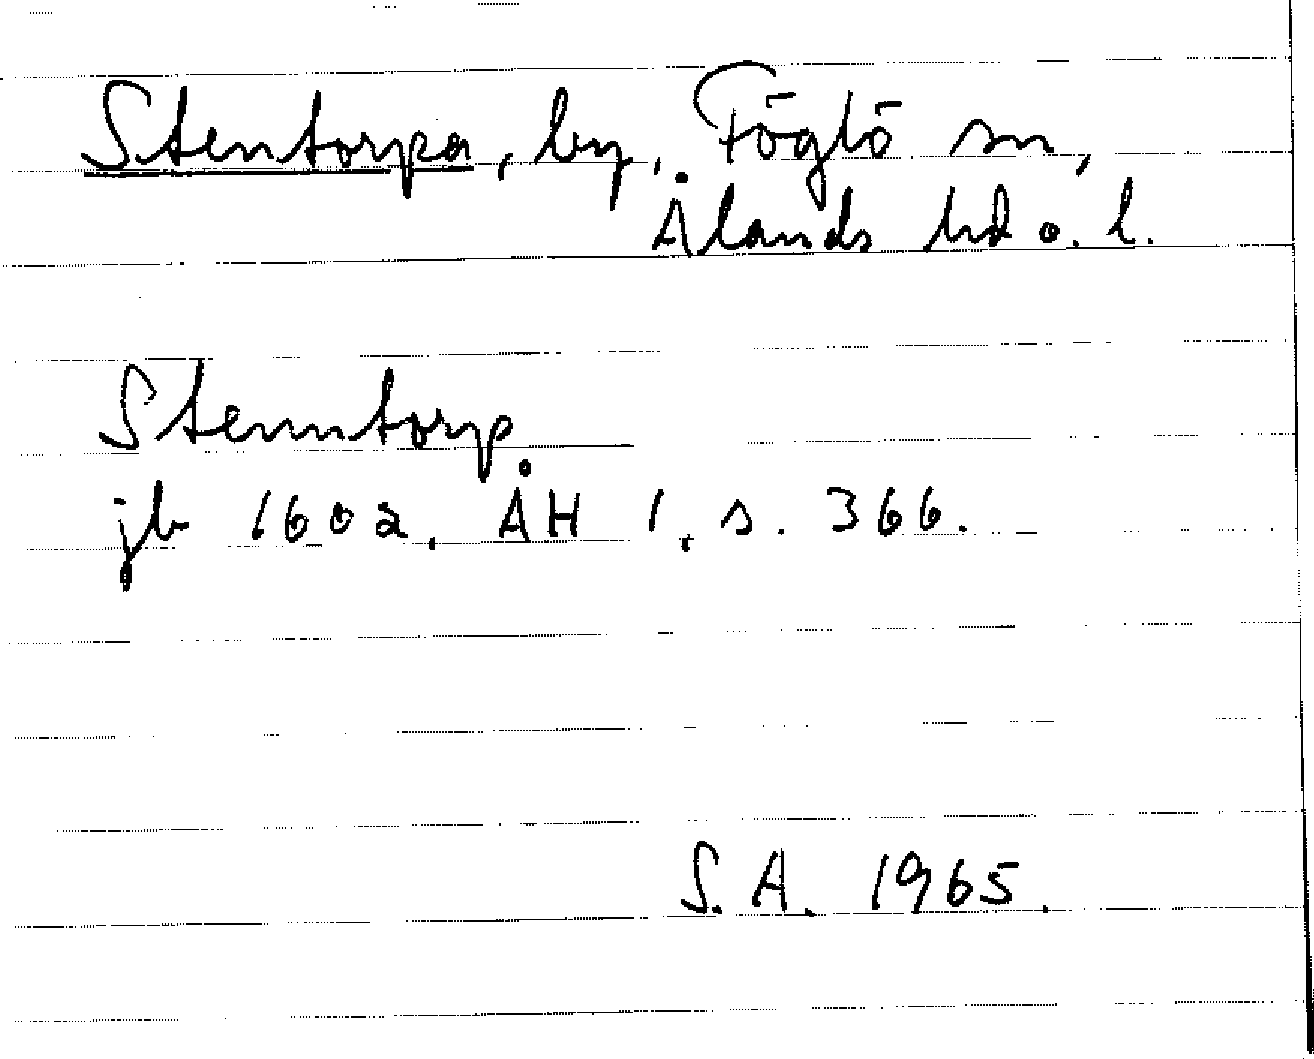 Stentorpa, by, Föglö sn,
Ålands hd o. l.
Stenntorp
jb 1602. ÅH 1, s. 366.
S.A. 1965.